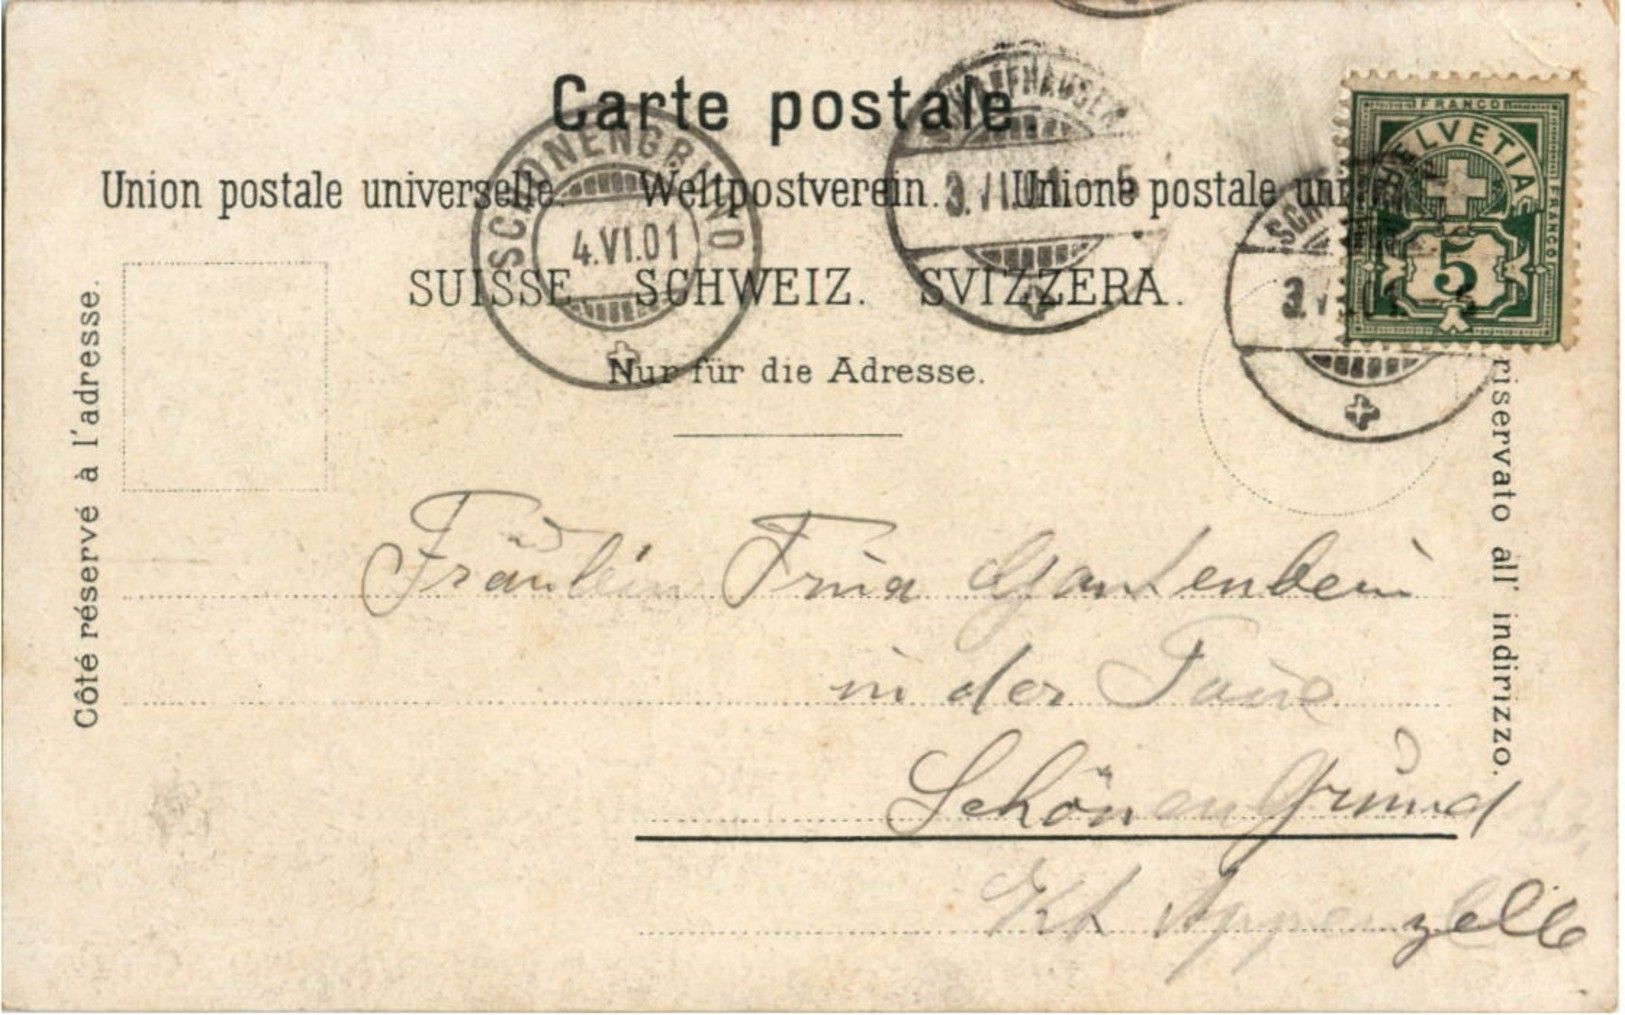 Carte postale
Union postale universelle. Weltpostverein. Unione postale uni
SUISSE SCHWEIZ. SVIZZERA.
Nur für die Adresse.
Côté réservé à l'adresse.
riservato all' indirizzo.
SCHÖNENGRUND
4.VI.01
AFFHAUSEN
3.VI. 5
SCH
3.VI.01
FRANCO
HELVETIA
FRANCO
5
Fräulein Frida Gantenbein
in der
Schönengrund
Kt Appenzelle